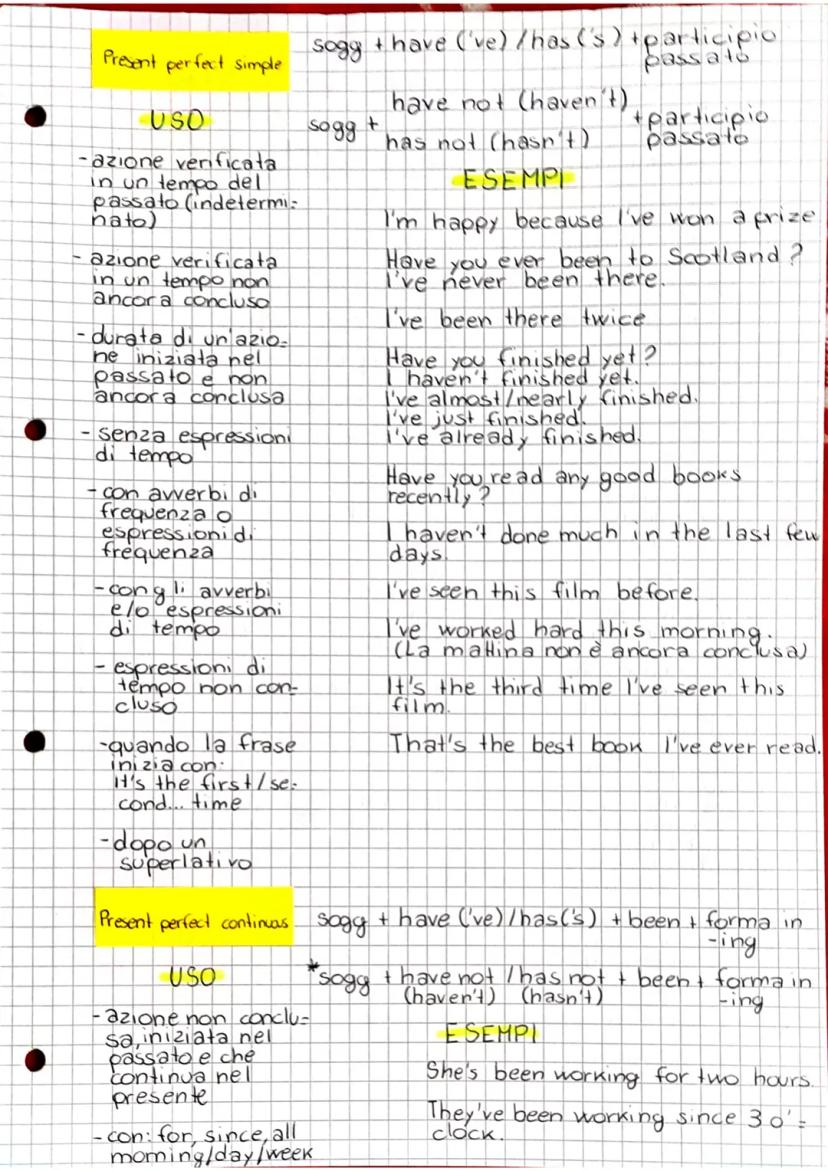 Present perfect simple
sogg + have ('ve) / has ('s) + participio
passato
sogg +
have not (haven't)
has not (hasn't)
+ participio
passato
USO
- azione verificata
in un tempo del
passato (indetermi=
nato)
- azione verificata
in un tempo non
ancora concluso
- durata di un'azio=
ne iniziata nel
passato e non
ancora conclusa
- senza espressioni
di tempo
- con avverbi di
frequenza o
espressioni di
frequenza
- con gli avverbi
e/o espressioni
di tempo
- espressioni di
tempo non con=
cluso
- quando la frase
inizia con:
it's the first/se=
cond... time
- dopo un
superlativo
ESEMPI
I'm happy because I've won a prize
Have you ever been to Scotland?
I've never been there.
I've been there twice
Have you finished yet?
I haven't finished yet.
I've almost/nearly finished.
I've just finished.
I've already finished.
Have you read any good books
recently?
I haven't done much in the last few
days.
I've seen this film before.
I've worked hard this morning.
(La mattina non è ancora conclusa)
It's the third time I've seen this
film.
That's the best book I've ever read.
Present perfect continuos
sogg + have ('ve) / has ('s) + been + forma in
-ing
*sogg + have not / has not + been + forma in
(haven't) (hasn't) -ing
USO
- azione non conclu=
sa, iniziata nel
passato e che
continua nel
presente
- con: for, since, all
morning/day/week
ESEMPI
She's been working for two hours.
They've been working since 3 o'=
clock.